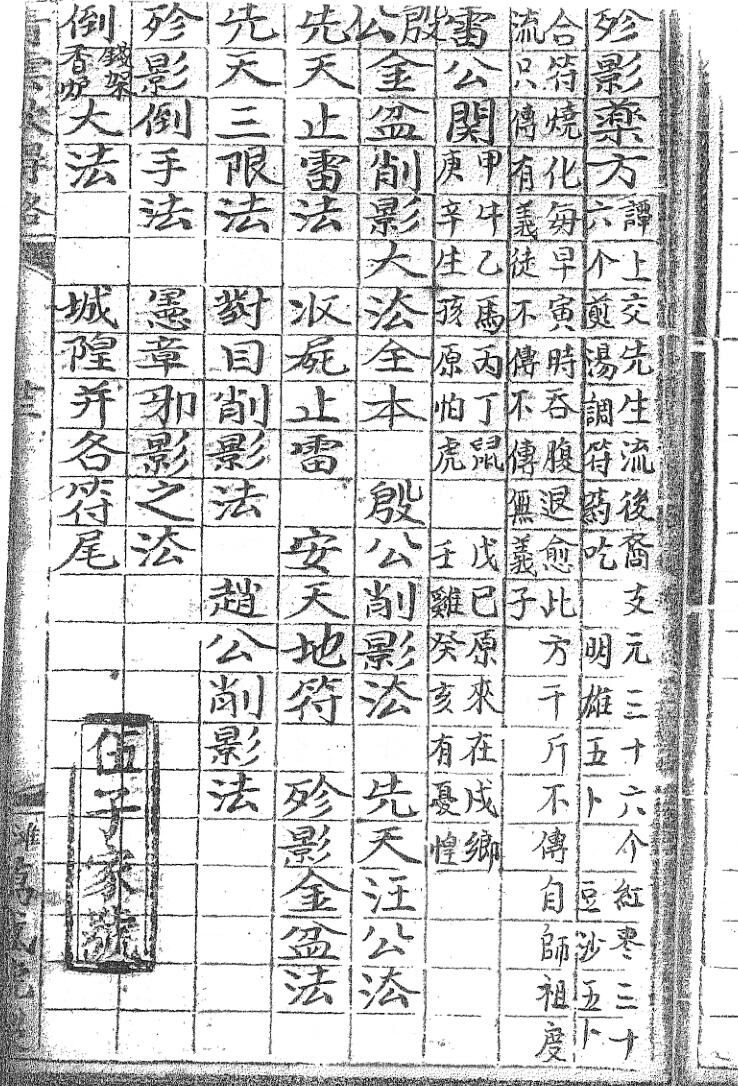 殄影藥方
譚上交先生流後裔支元三十六介紅枣三十
六个煎湯調符葯吃 明雄五卜豆沙五卜
合符燒化每早寅時吞腹退愈此方千斤不傳自師祖度
流只傳有義徒不傳不傳無義子
雷公関
甲牛乙馬丙丁鼠 戊已原來在戍鄉
庚辛生孩原怕虎 壬雞癸亥有憂惶
殷公金盆削影大法全本 殷公削影法 先天汪公法
先天止雷法 収屍止雷 安天地符 殄影金盆法
先天三限法 對目削影法 趙公削影法
殄影倒手法 愚章邪影之法
倒錢架香炉大法 城隍并各符尾
伍子家號